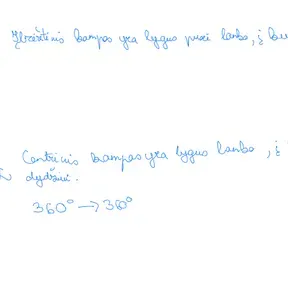 Įbrėžtinis kampas yra lygus pusei lanko, į
Centrinis kampas yra lygus lanko, į
dydžiui.
360° → 360°